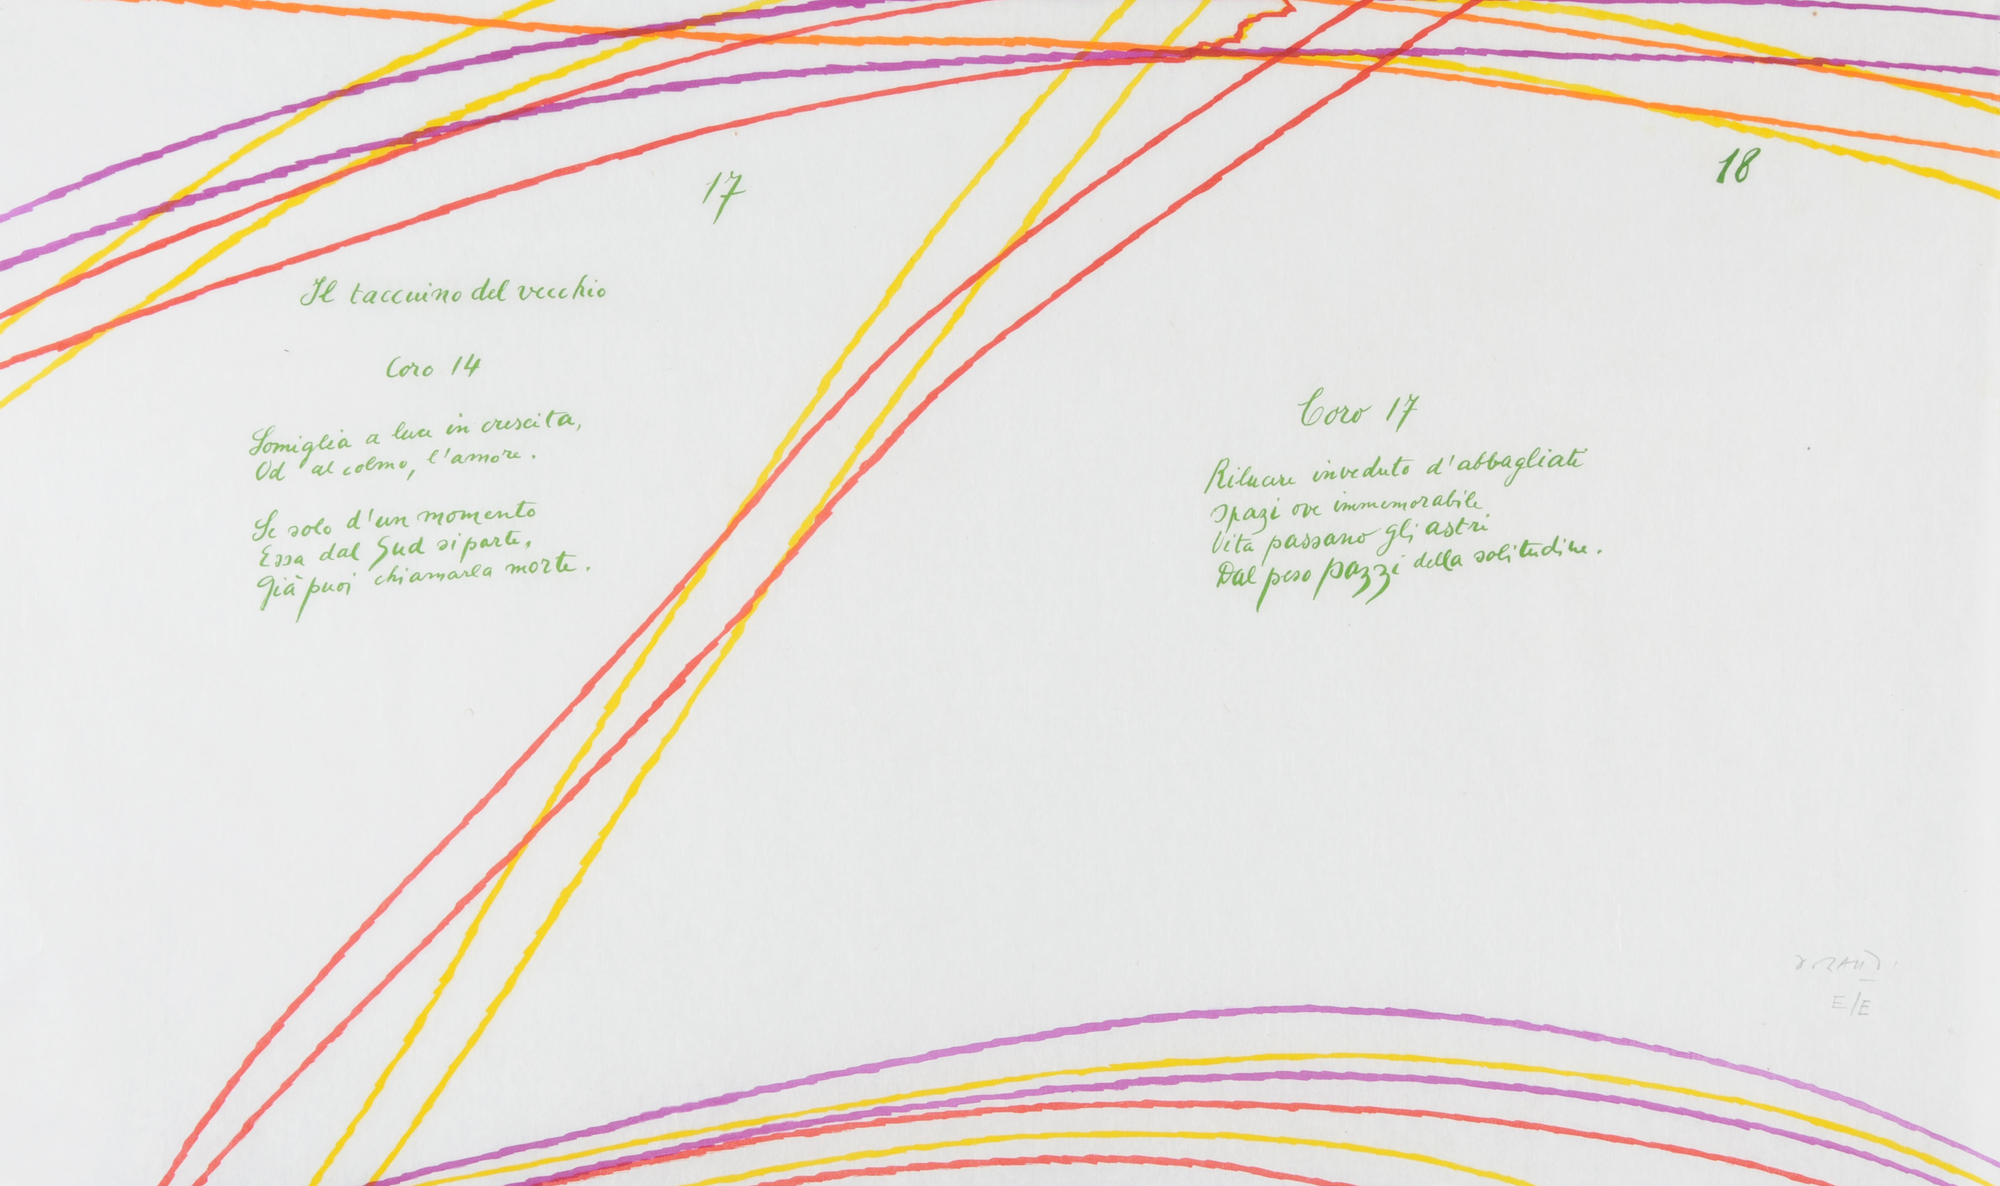 17
Il taccuino del vecchio
Coro 14
Somiglia a luce in crescita,
Od al colmo, l'amore.
Se solo d'un momento
Essa dal Sud si parte,
Già puoi chiamarla morte.
18
Coro 17
Rilucere inveduto d'abbagliati
Spazi ove immemorabile
Vita passano gli astri
Dal peso pazzi della solitudine.
DORAZIO
E/E